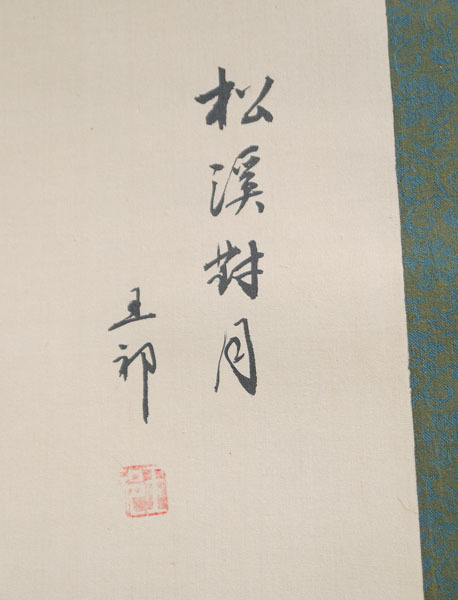 松溪對月
王祁